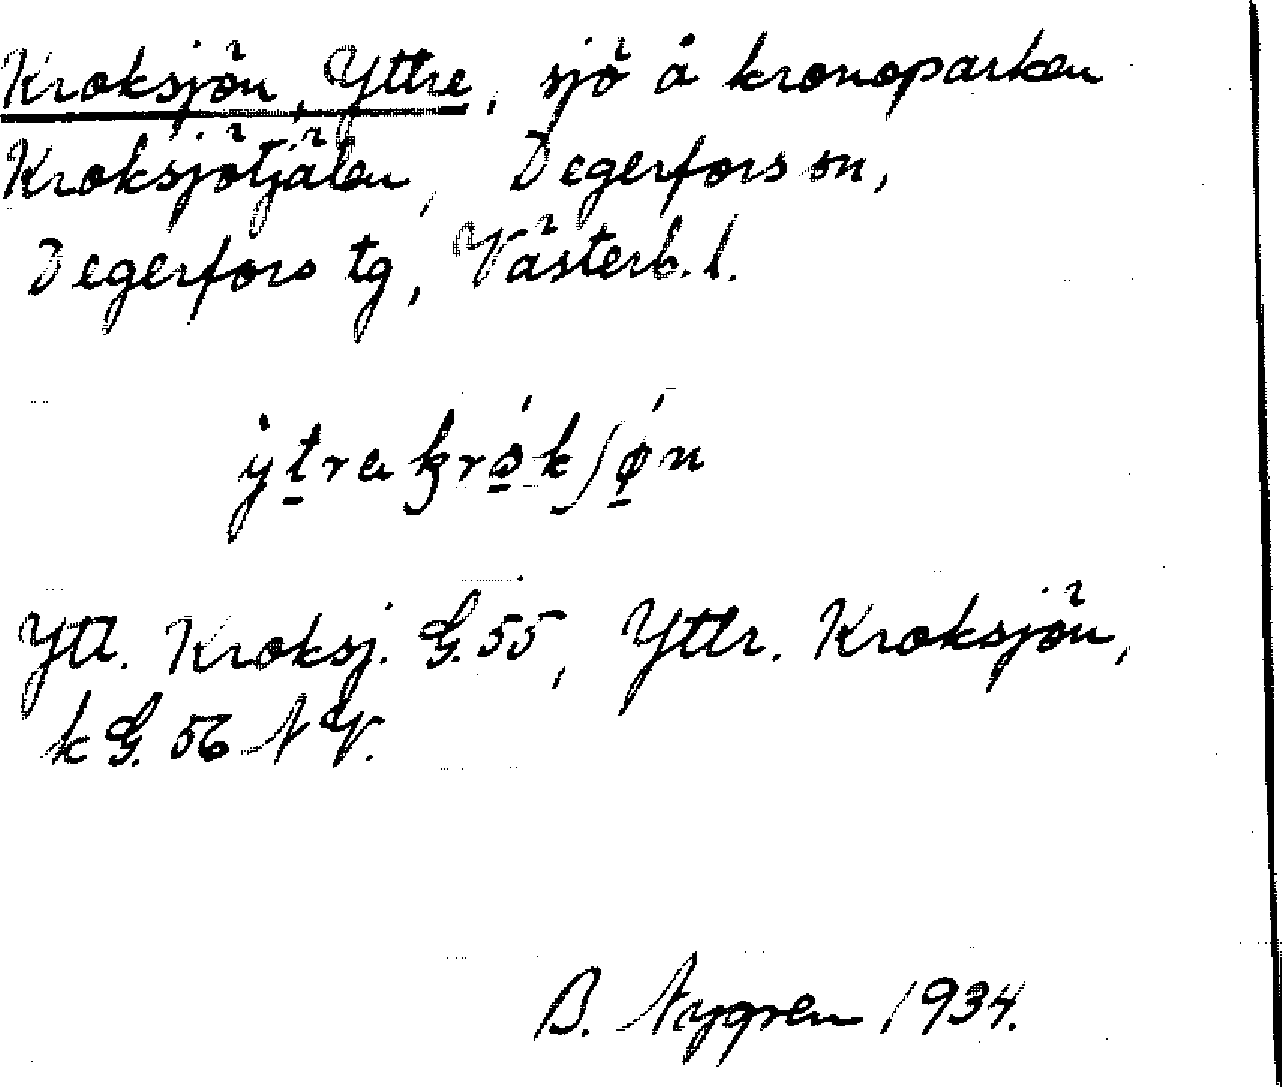 Kroksjön, Yttre, sjö å kronoparken
Kroksjötjälen, Degerfors sn,
Degerfors tg, Västerb. l.
ẏt̲ra kró̲kʃǿ̲n
Ytt. Kroksj. G. 55, Yttr. Kroksjön,
k G. 56 NV.
B. Nygren 1934.